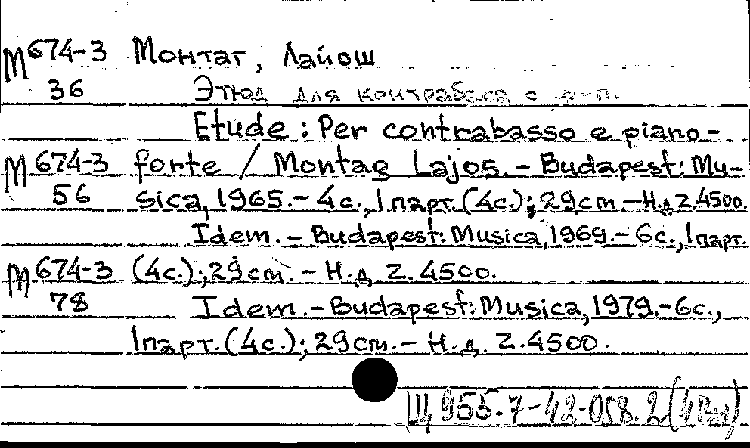 М 674-3 Монтаг, Лайош
36 Этюд для контрабаса с ф-п.
Etude : Per contrabasso e piano-
М 674-3 forte / Montag Lajos. - Budapest: Mu-
56 sica, 1965. - 4 с., 1 парт. (4с.); 29 cm - Н.д. Z.4500.
Idem. - Budapest: Musica, 1969. - 6с., 1 парт.
М 674-3 (4с.); 29 cm. - Н.д. Z. 4500.
78 Idem. - Budapest: Musica, 1979. - 6с.,
1 парт. (4с.); 29 cm. - Н.д. Z. 4500.
Щ 955.7-42-058.2